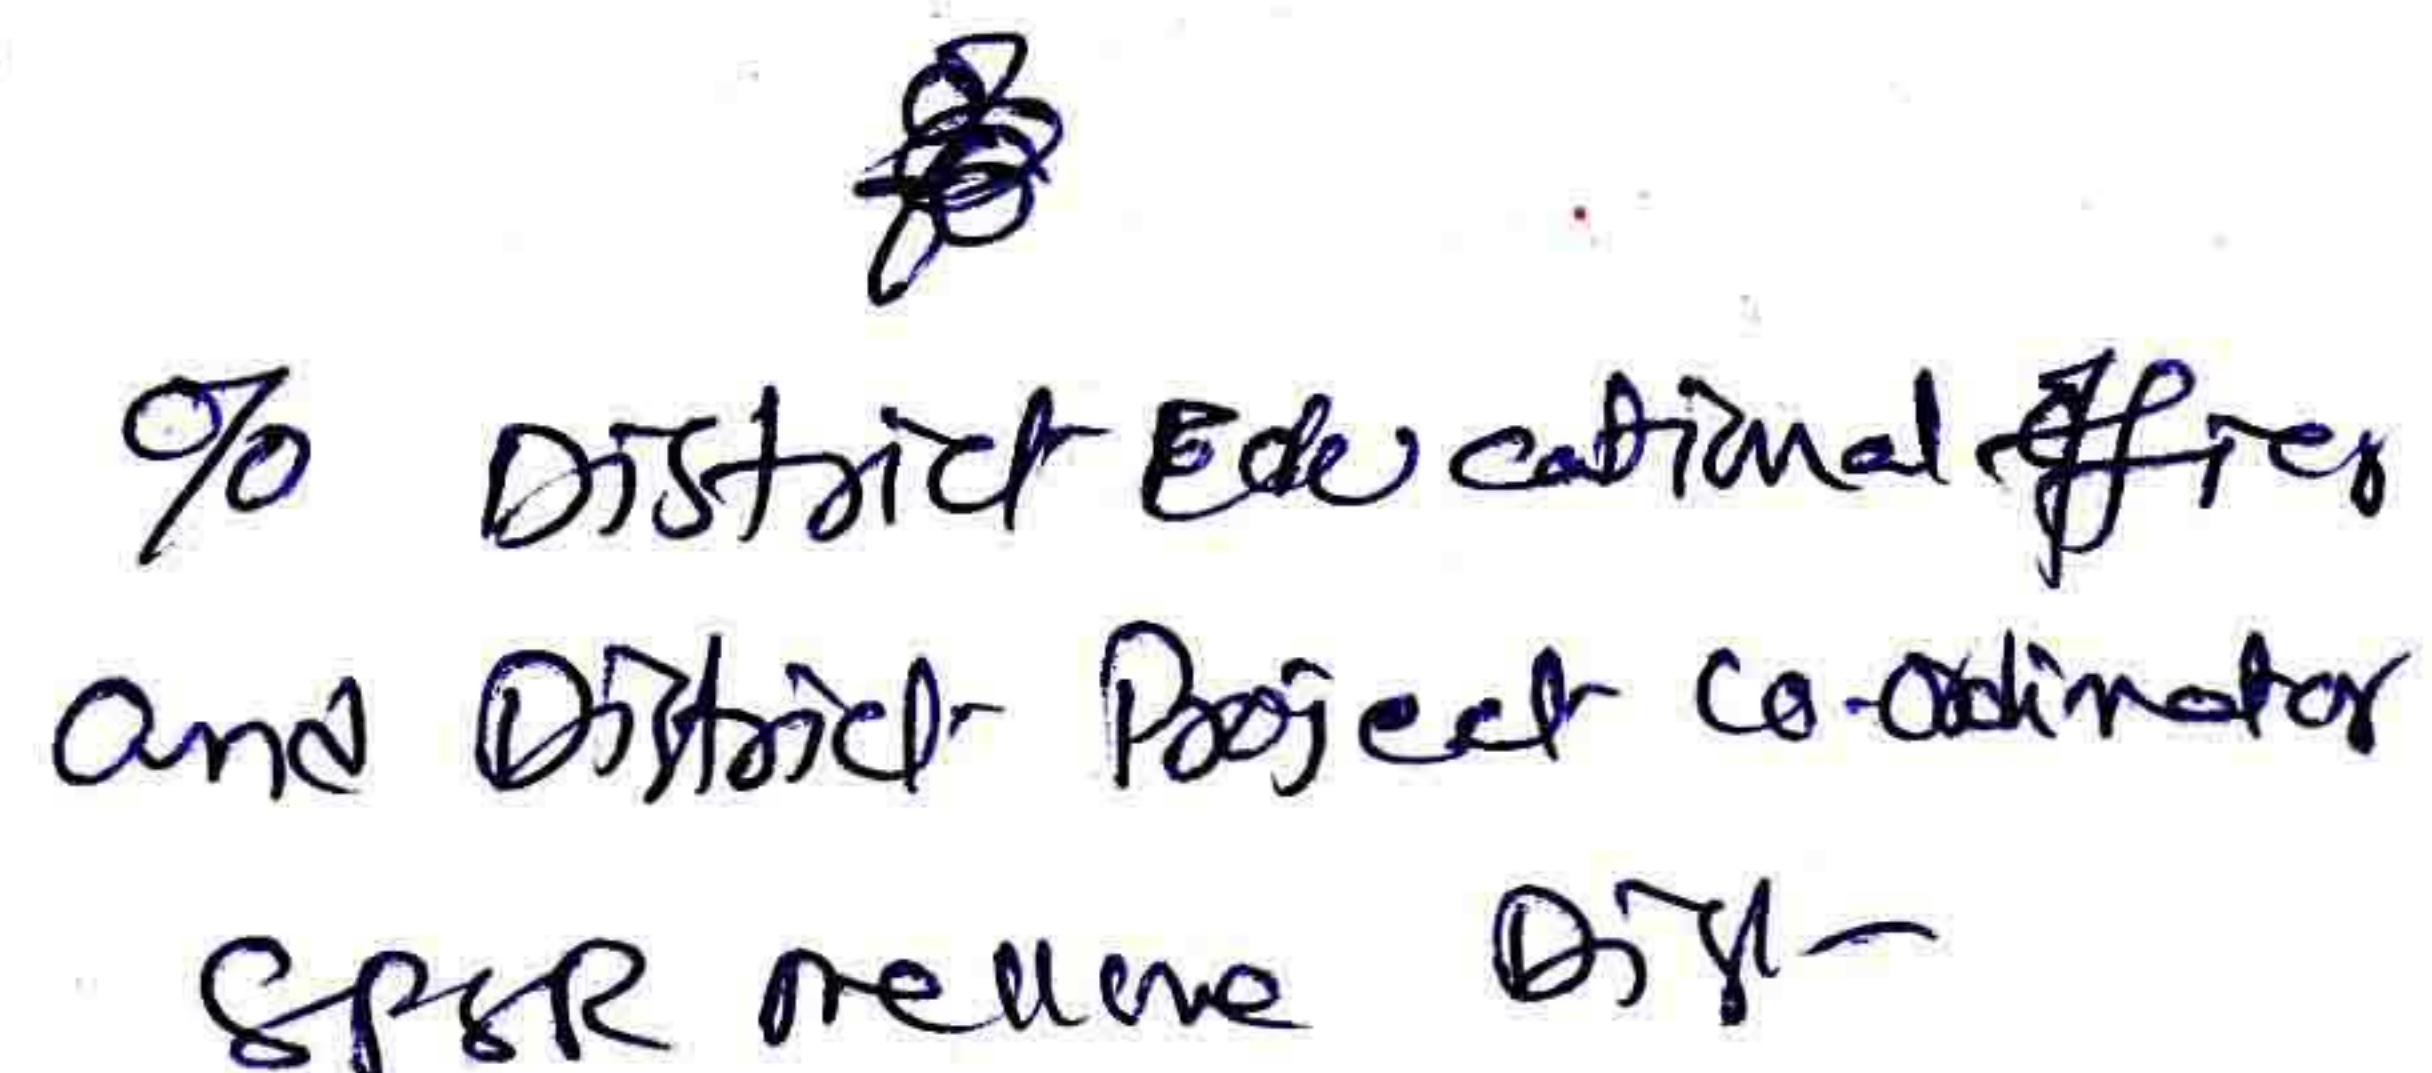 % District Educational Officer
and District Project Co-ordinator
SPSR nellore Dist